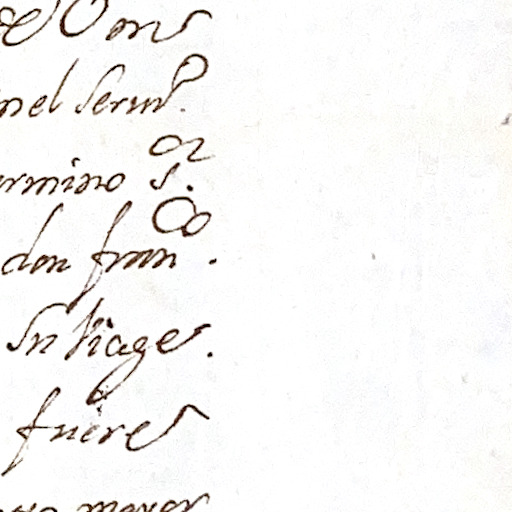 nel serui.º
ermino s.or
don fran.co
su Viage.
fuere
mayor